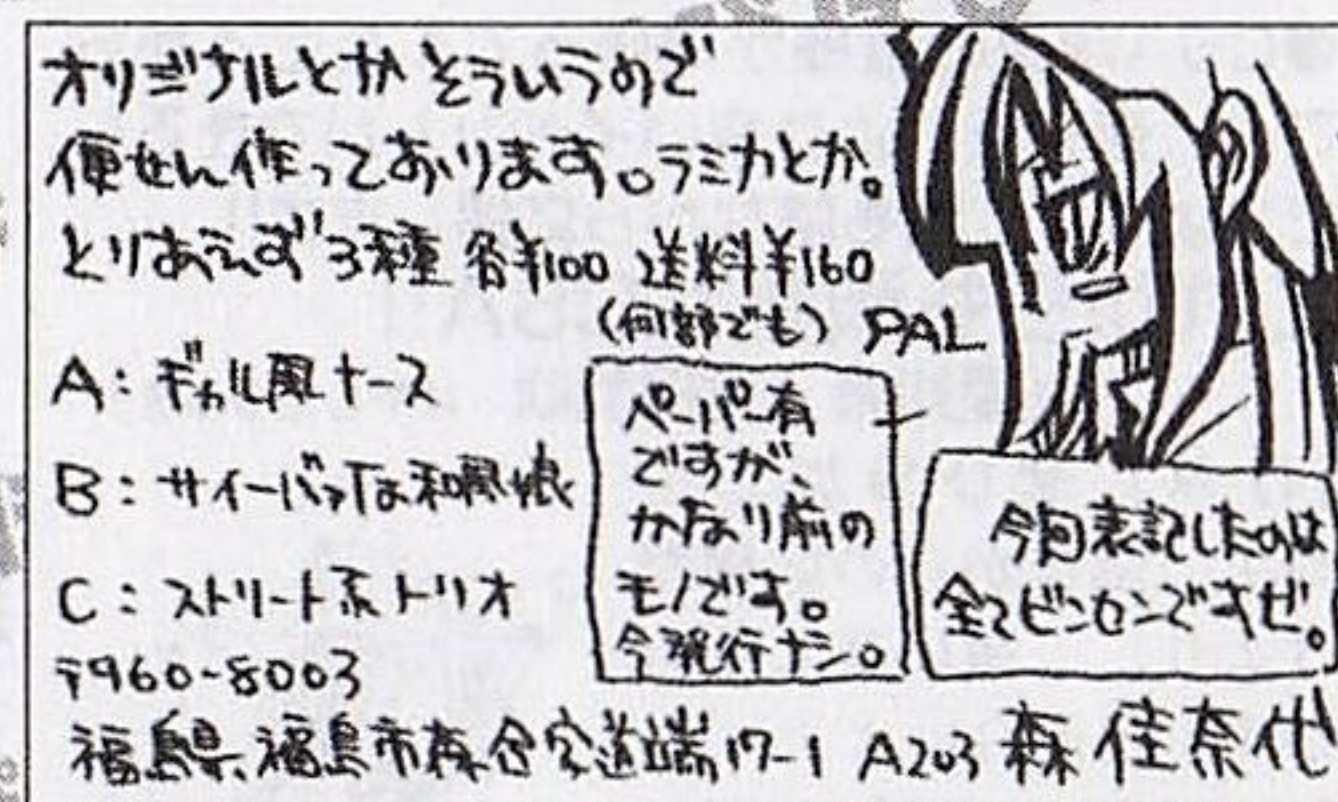 オリジナルとか そういうので
便せん作っております。ラミカとか。
とりあえず3種 各¥100 送料¥160
(何部でも) PAL
A: ギャル風ナース
B: サイバァな和風娘
C: ストリート系トリオ
ペーパー有
ですが、
かなり前の
モノです。
今発行ナシ。
今回表記したのは
全てビンセンですぜ。
〒960-8003
福島県福島市森合字道端17-1 A203 森 佳奈代